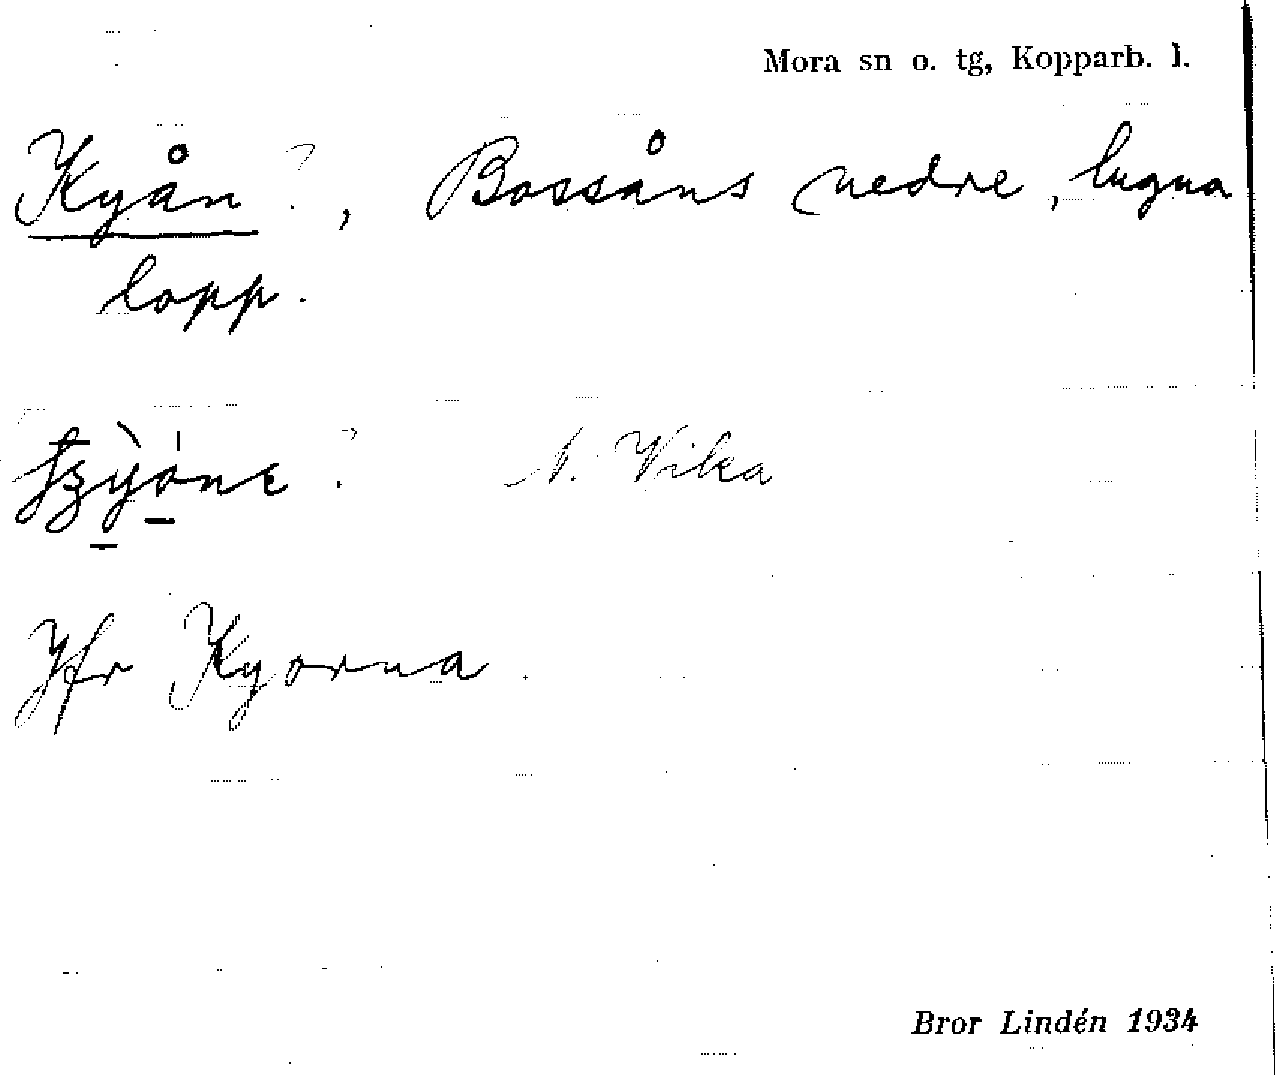 Mora sn o. tg, Kopparb. l.
Kyån ?, Bossåns nedre, lugna
lopp.
? N. Vika
Jfr Kyorna
Bror Lindén 1934